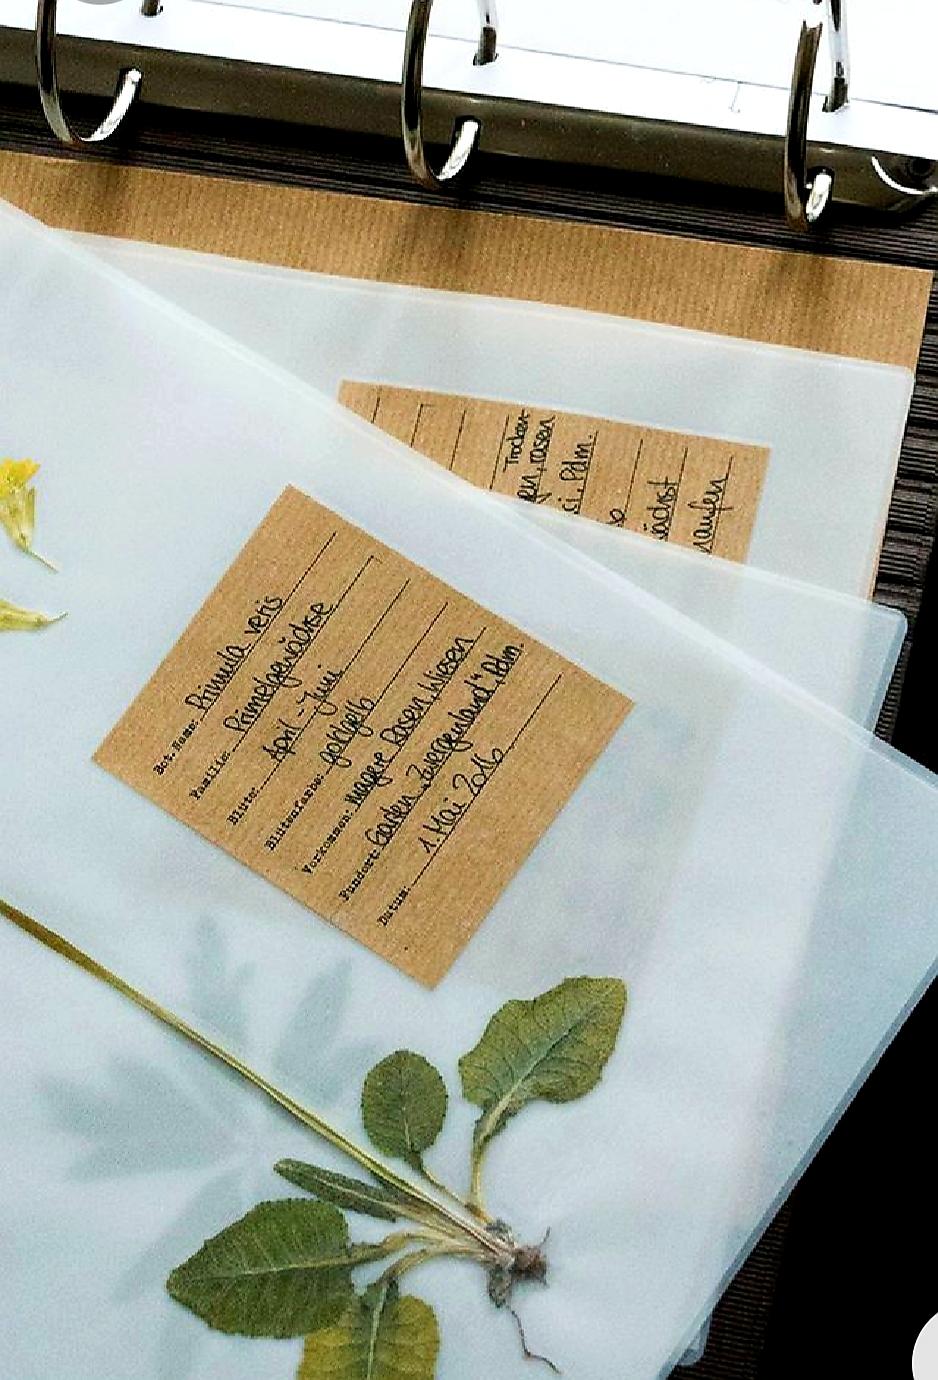 Bot. Name: Primula veris
Familie: Primelgewächse
Blüte: April - Juni
Blütenfarbe: goldgelb
Vorkommen: magere Rasen, Wiesen
Fundort: Garten "Zwergenland" Pdm.
Datum: 1. Mai 2016
Trocken-
gen, rasen
ci, Pdm.
6
wächst
laufen